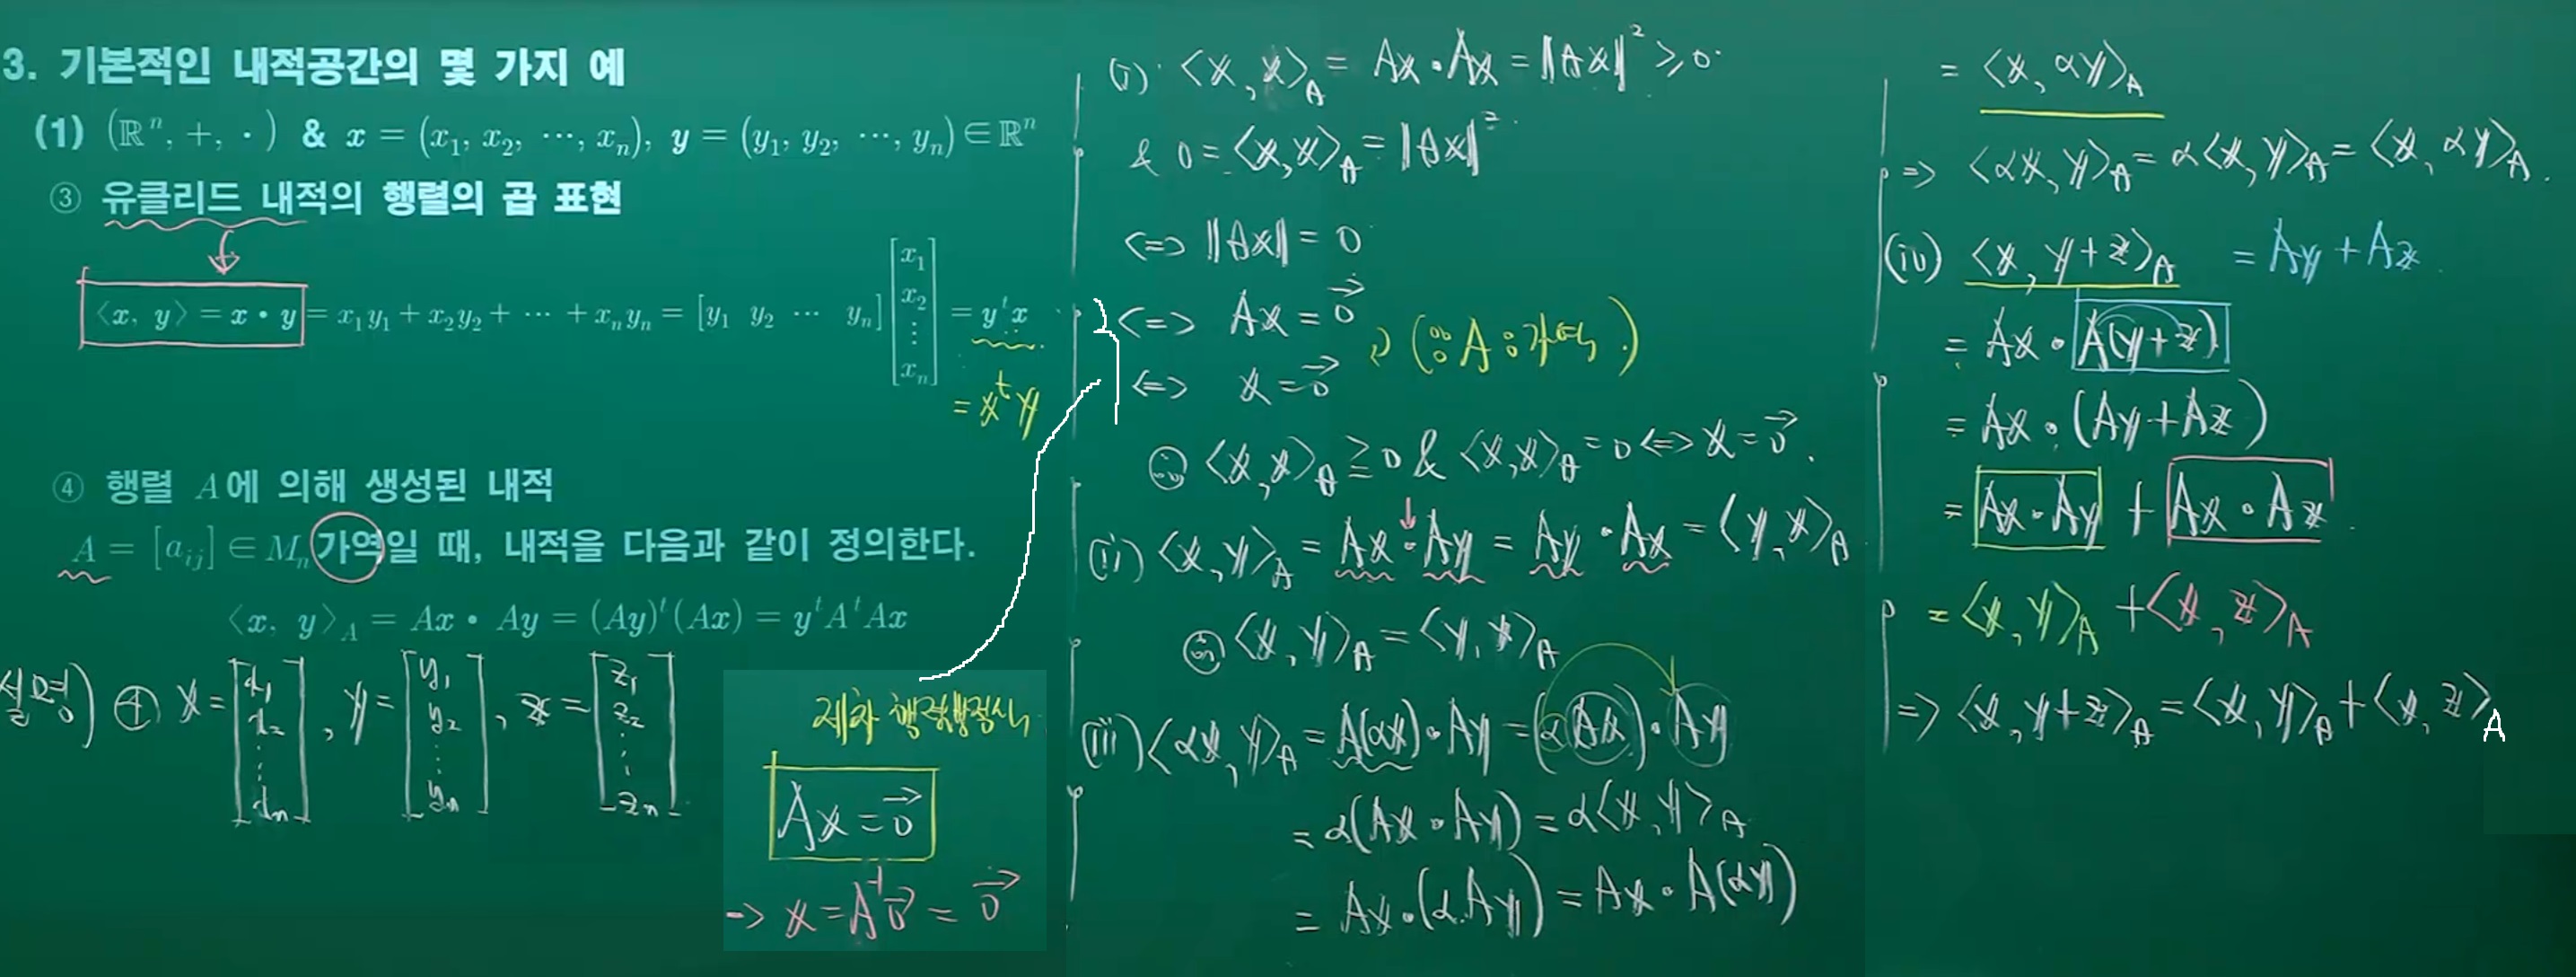 3. 기본적인 내적공간의 몇 가지 예
(1) (ℝⁿ, +, ·) & x = (x₁, x₂, ⋯, xₙ), y = (y₁, y₂, ⋯, yₙ) ∈ ℝⁿ
③ 유클리드 내적의 행렬의 곱 표현
⟨x, y⟩ = x • y = x₁y₁ + x₂y₂ + ⋯ + xₙyₙ = [y₁ y₂ ⋯ yₙ] [x₁ x₂ ⋮ xₙ] = yᵗx
= xᵗy
④ 행렬 A에 의해 생성된 내적
A = [aᵢⱼ] ∈ Mₙ 가역일 때, 내적을 다음과 같이 정의한다.
⟨x, y⟩_A = Ax • Ay = (Ay)ᵗ(Ax) = yᵗAᵗAx
설명) ④ x = [x₁ x₂ ⋮ xₙ], y = [y₁ y₂ ⋮ yₙ], z = [z₁ z₂ ⋮ zₙ]
제차
Ax = 0⃗
→ x = A⁻¹0⃗ = 0⃗
(i) ⟨x, x⟩_A = Ax • Ax = ‖Ax‖² ≥ 0
& 0 = ⟨x, x⟩_A = ‖Ax‖²
⇔ ‖Ax‖ = 0
⇔ Ax = 0⃗
(∵ A : 가역)
⇔ x = 0⃗
∴ ⟨x, x⟩_A ≧ 0 & ⟨x, x⟩_A = 0 ⇔ x = 0⃗.
(ii) ⟨x, y⟩_A = Ax • Ay = Ay • Ax = ⟨y, x⟩_A
∴ ⟨x, y⟩_A = ⟨y, x⟩_A
(iii) ⟨αx, y⟩_A = A(αx) • Ay = (αAx) • Ay
= α(Ax • Ay) = α⟨x, y⟩_A
= Ax • (αAy) = Ax • A(αy)
= ⟨x, αy⟩_A
⇒ ⟨αx, y⟩_A = α⟨x, y⟩_A = ⟨x, αy⟩_A.
(iv) ⟨x, y+z⟩_A = Ay + Az
= Ax • A(y+z)
= Ax • (Ay + Az)
= Ax • Ay + Ax • Az
= ⟨x, y⟩_A + ⟨x, z⟩_A
⇒ ⟨x, y+z⟩_A = ⟨x, y⟩_A + ⟨x, z⟩_A